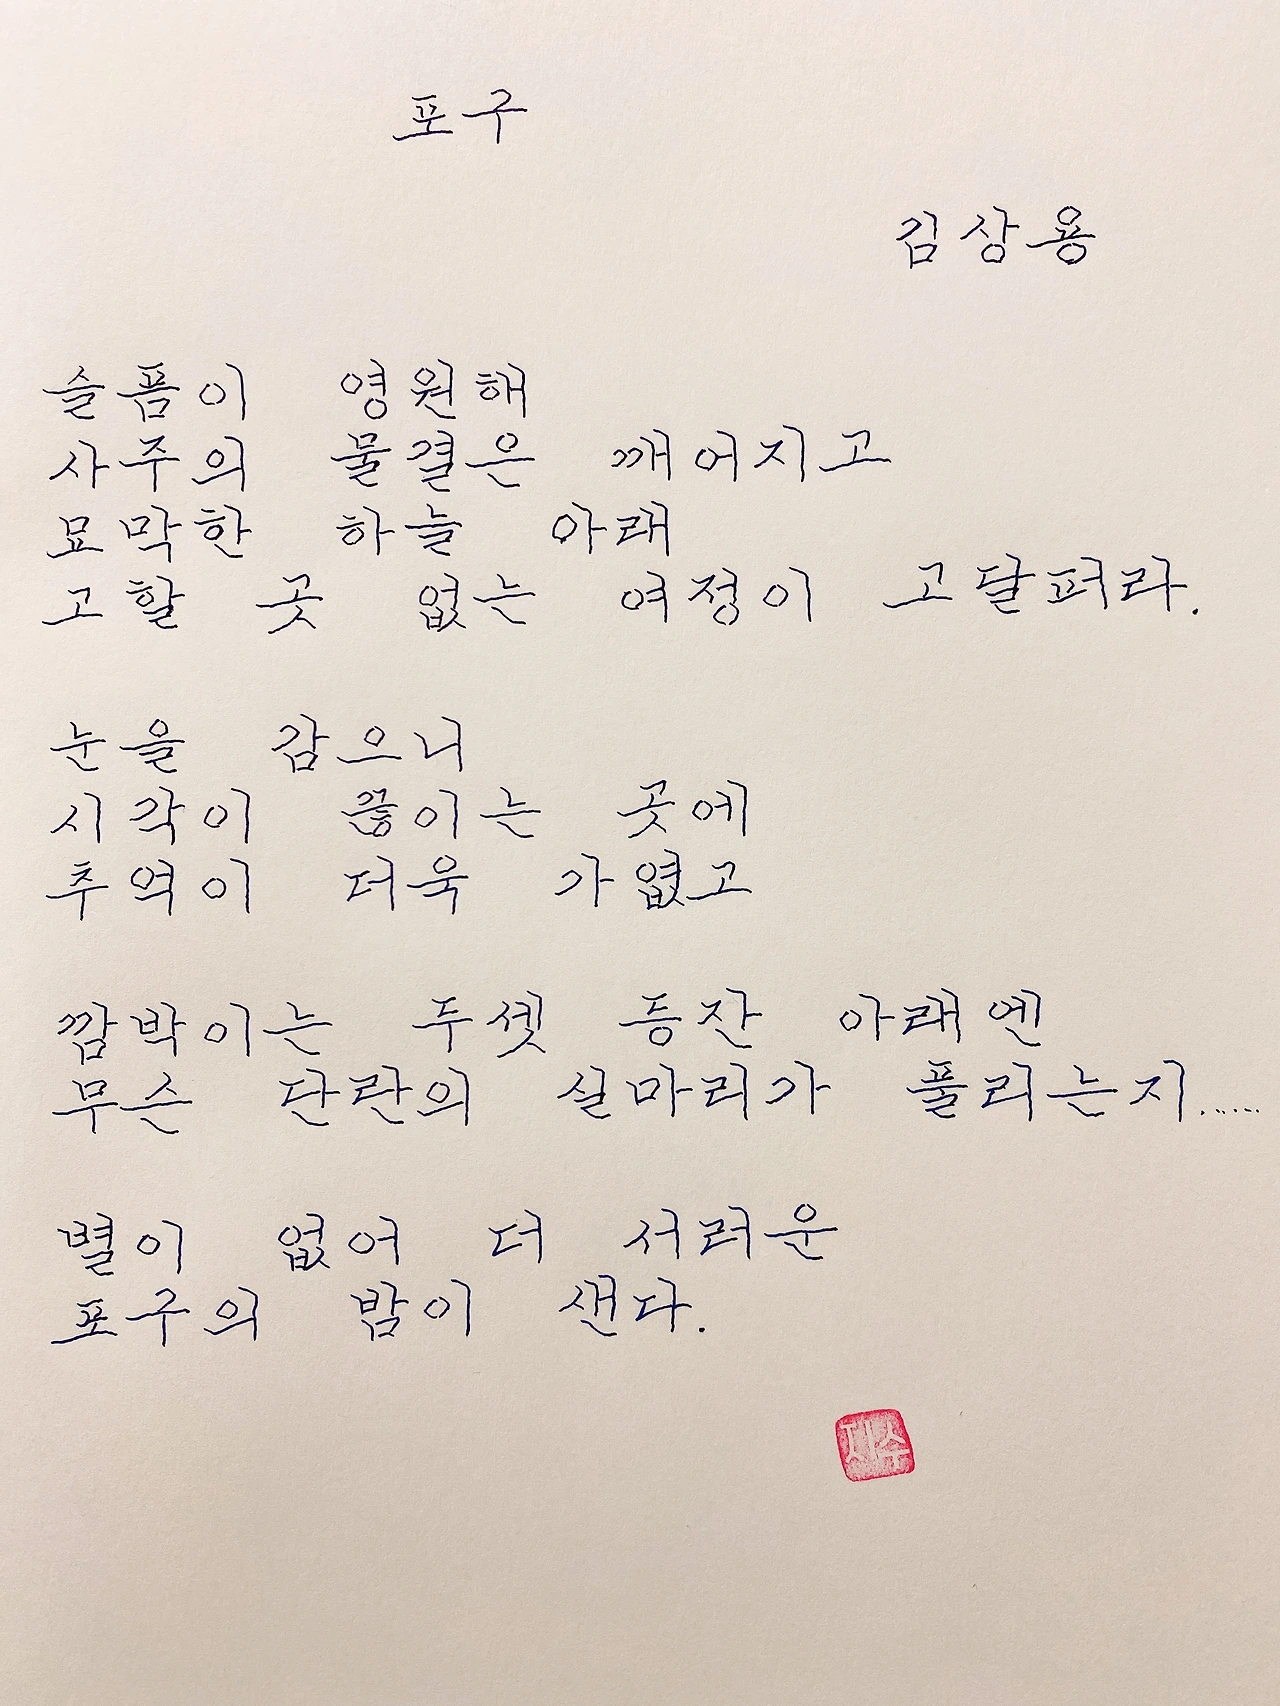 포구
김상용
슬픔이 영원해
사주의 물결은 깨어지고
묘막한 하늘 아래
고할 곳 없는 여정이 고달퍼라.
눈을 감으니
시각이 끊이는 곳에
추억이 더욱 가엾고
깜박이는 두셋 등잔 아래엔
무슨 단란의 실마리가 풀리는지......
별이 없어 더 서러운
포구의 밤이 샌다.